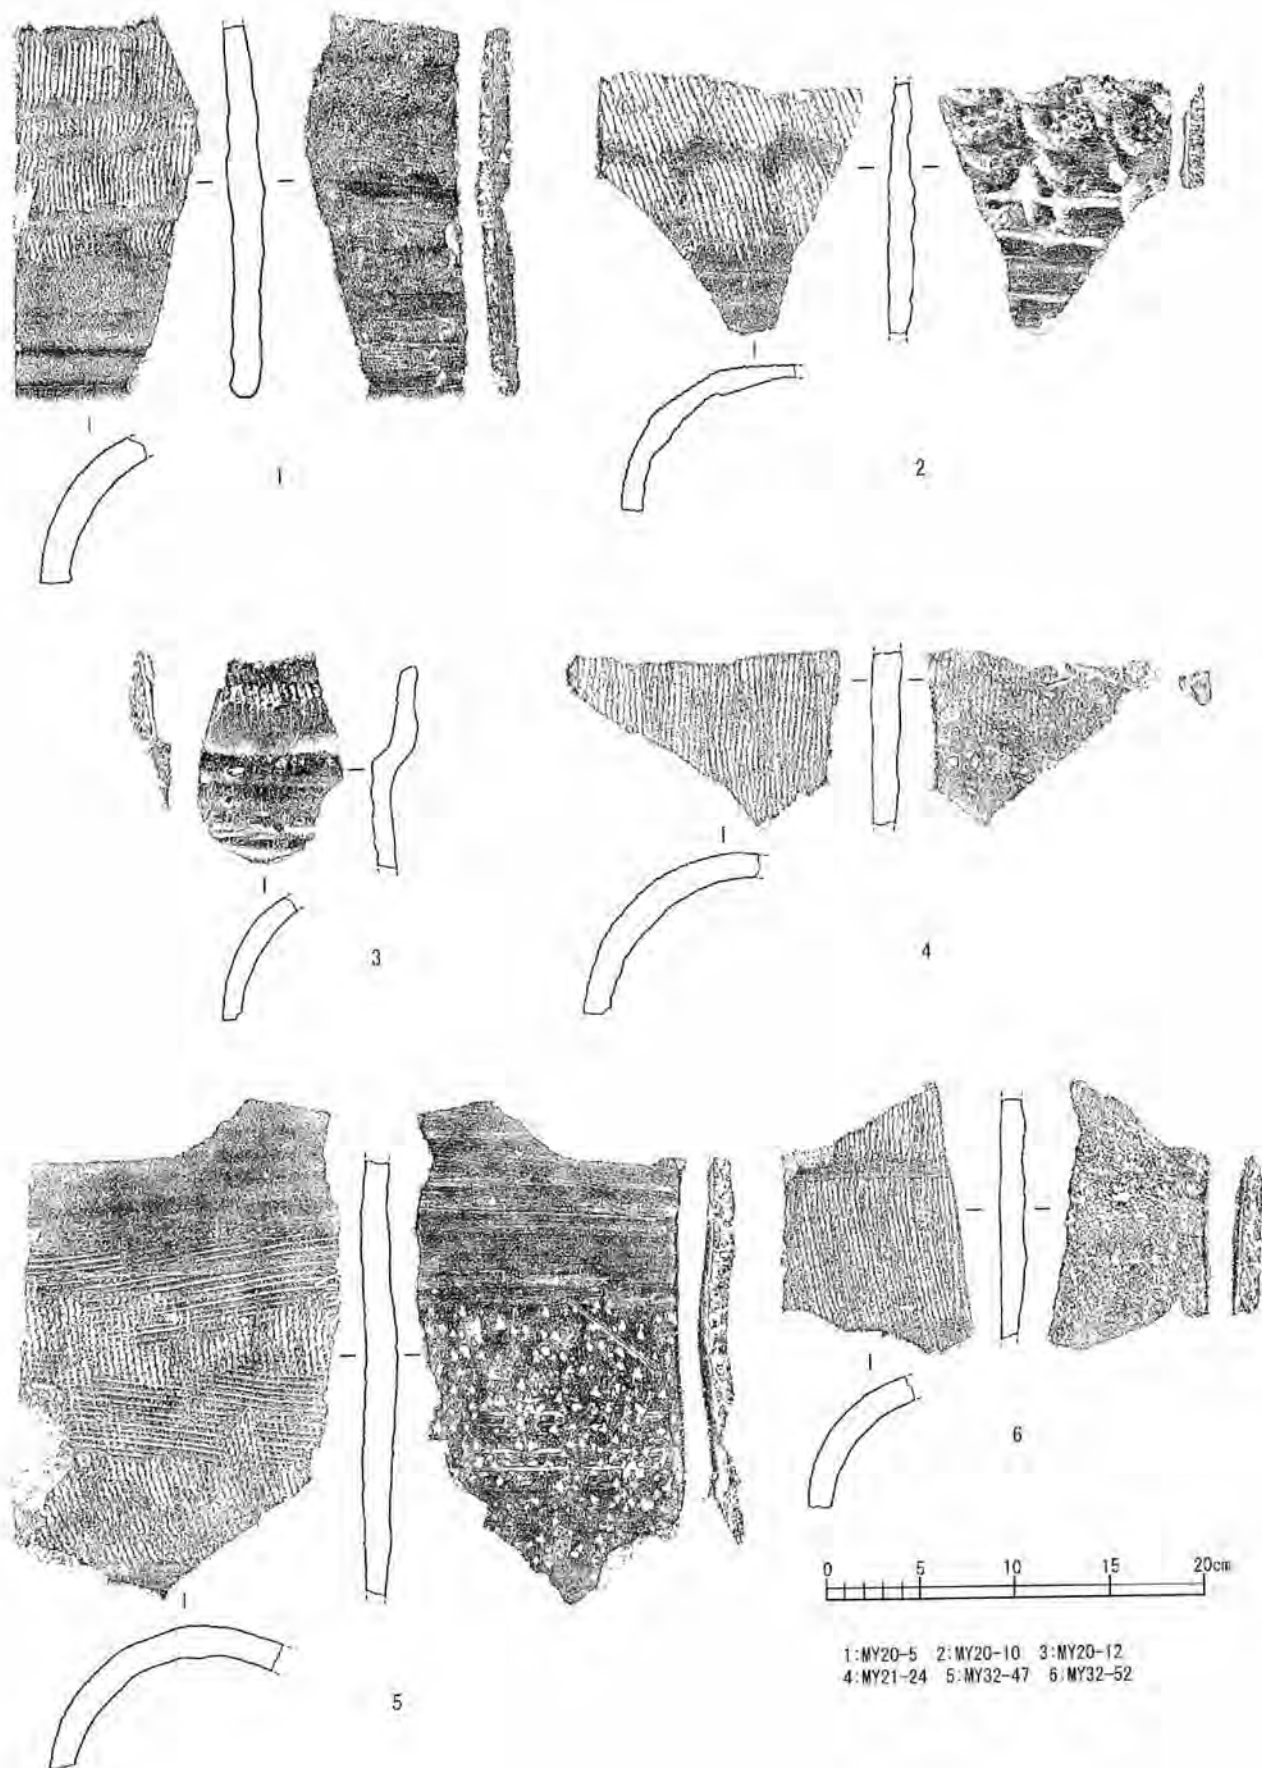 1
2
3
4
5
6
0 5 10 15 20cm
1:MY20-5 2:MY20-10 3:MY20-12
4:MY21-24 5:MY32-47 6:MY32-52